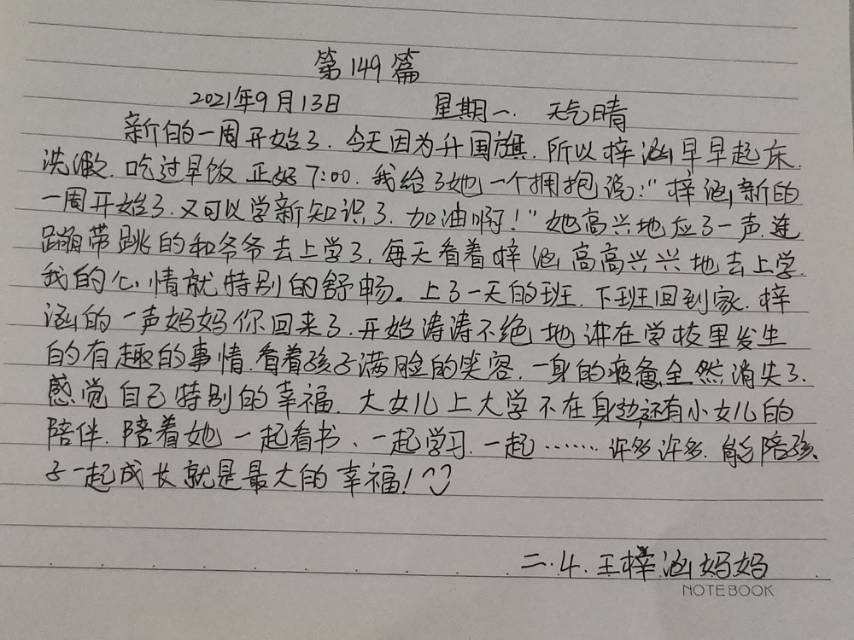 第149篇
2021年9月13日 星期一. 天气晴
新的一周开始了.今天因为升国旗.所以梓涵早早起床.
洗漱.吃过早饭正好7:00.我给了她一个拥抱说:"梓涵新的
一周开始了.又可以学新知识了.加油啊!"她高兴地应了一声.连
蹦带跳的和爷爷去上学了.每天看着梓涵高高兴兴地去上学.
我的心情就特别的舒畅。上了一天的班.下班回到家.梓
涵的一声妈妈你回来了.开始涛涛不绝地讲在学校里发生
的有趣的事情.看着孩子满脸的笑容.一身的疲惫全然消失了.
感觉自己特别的幸福.大女儿上大学不在身边还有小女儿的
陪伴.陪着她一起看书、一起学习.一起……许多许多.能陪孩
子一起成长就是最大的幸福!
二.4.王梓涵妈妈
NOTEBOOK